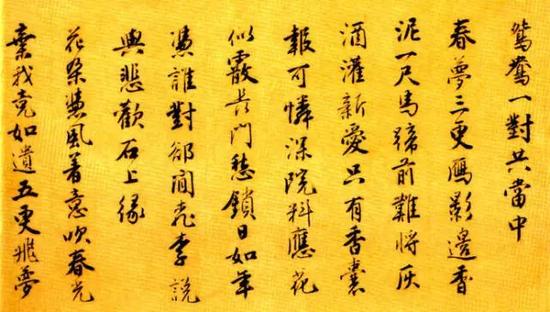 鴛鴦一對共當中
春夢三更鴈影邊香
泥一尺馬蹄前難將灰
酒灌新愛只有香囊
報可憐深院料應花
似霰長門愁鎖日如年
慿誰對卻閒桃李說
與悲歡石上緣
花朶慿風著意吹春光
棄我竟如遺五更飛夢